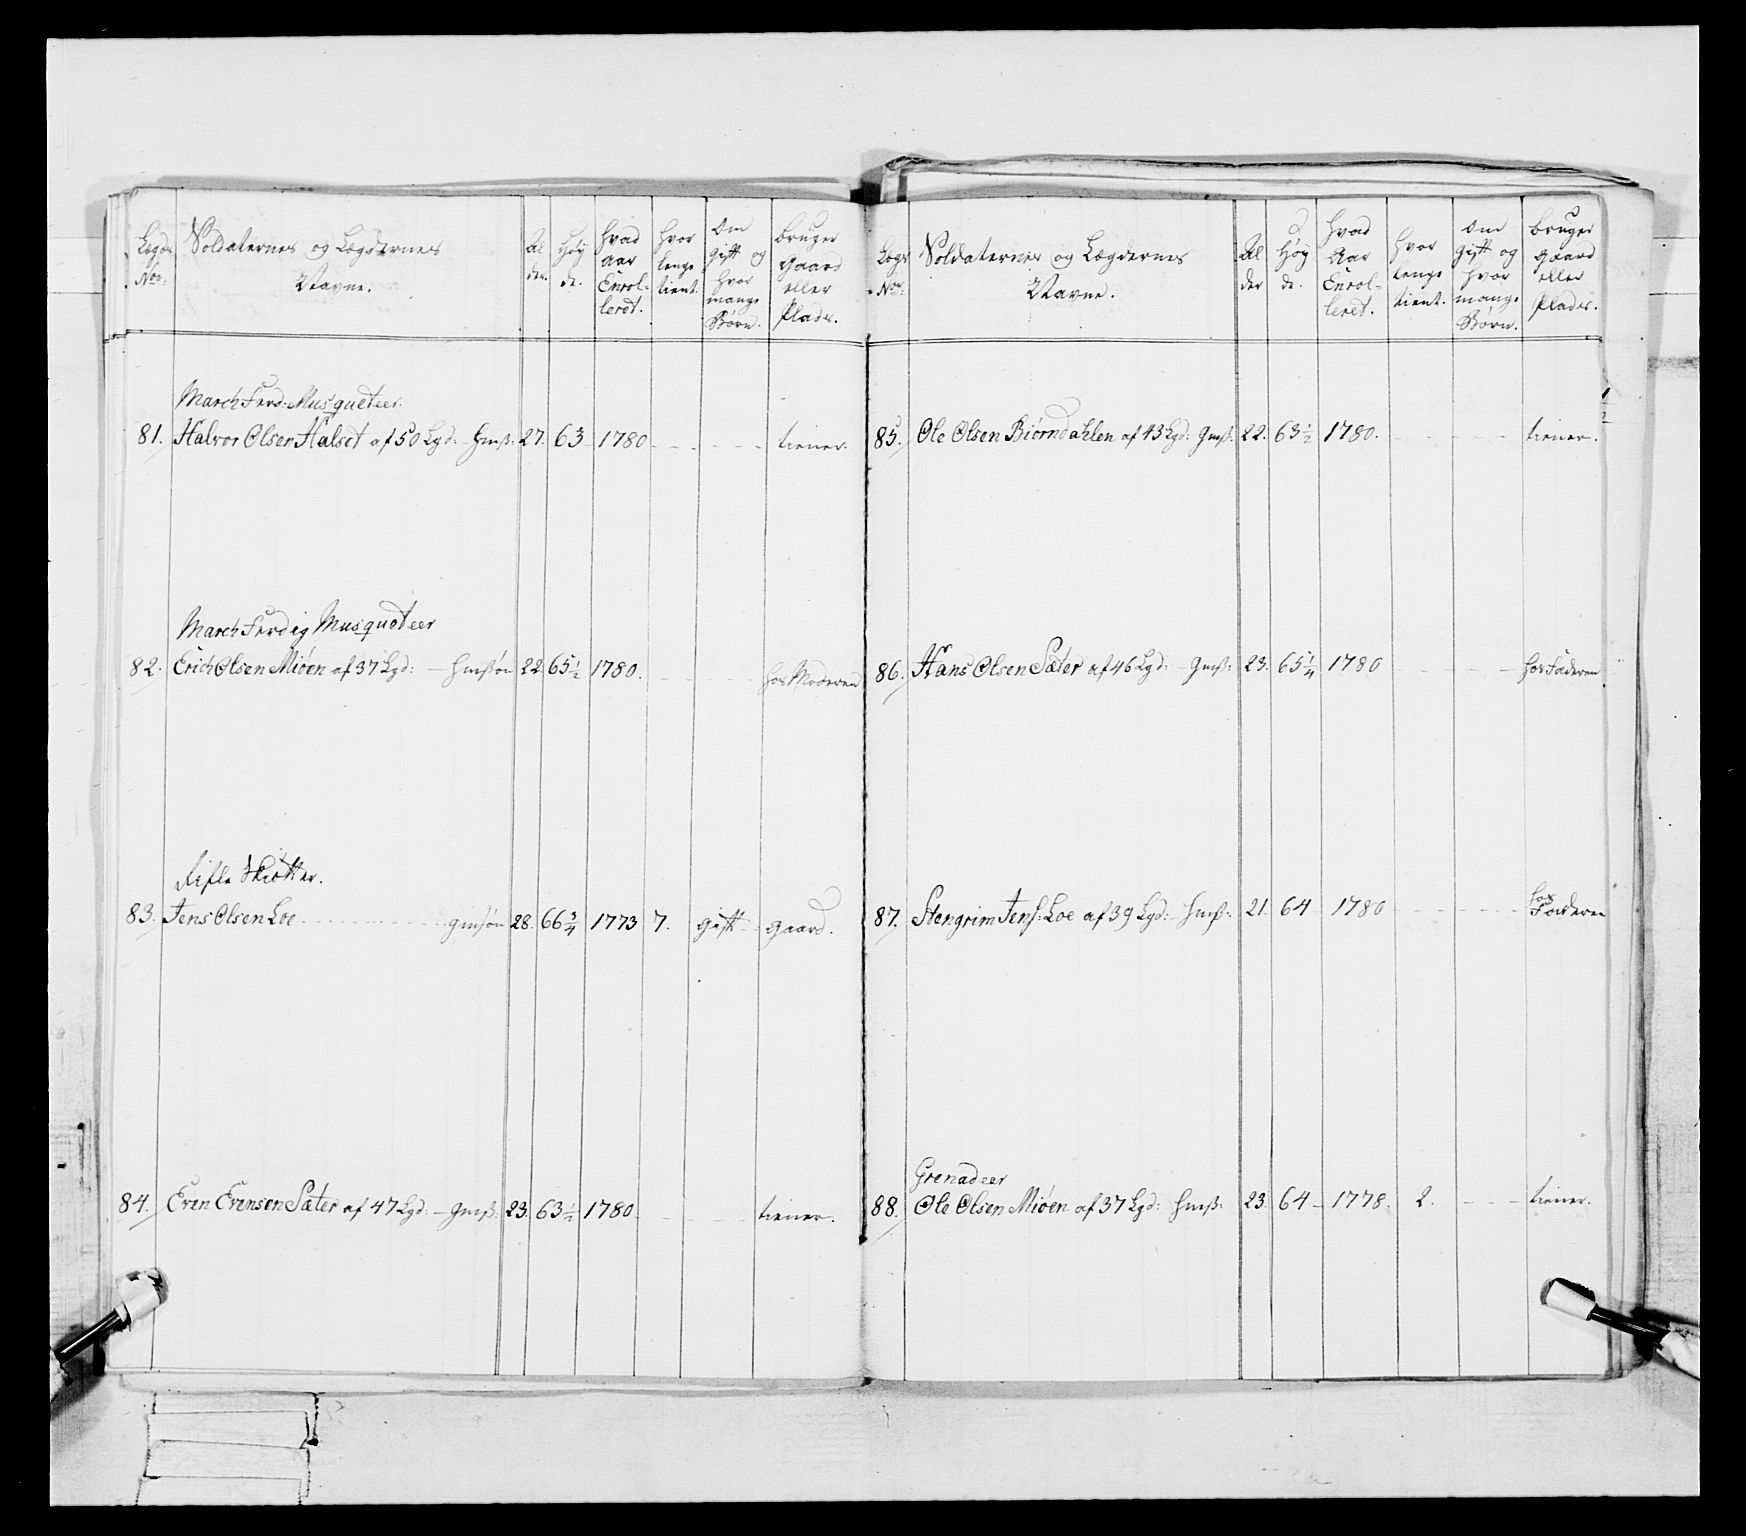 Lægds No: | Soldaternes og Lægdernes Navne. | Al der. | Høy de. | hvad aar Enrol- leret. | hvor lenge tient. | Om gift og hvor mange Børn. | bruger gaard eller Plads.
March Færd: Musqueteer.
81. Halvor Olsen Halset af 50 Lgd: hmß: 27. 63 1780 tiener.
March Færdig Musqueteer
82. Erich Olsen Miöen af 37 Lgd: hmßön 22 65 1/2 1780. hos Moderen
Rifle Skiötter.
83. Jens Olsen Loe gmsön 28. 66 3/4 1773 7. gift gaard.
84. Even Evensen Sæter af 47 Lgd: gmß. 23. 63 1/2 1780. tiener.
Lægs No: | Soldaternes og Lægdernes Navne. | Al der | Høy de. | hvad Aar Enrol- leret. | hvor lenge tient. | Om gift og hvor mange Børn. | bruger gaard eller Plads.
85. Ole Olsen Biörndahlen af 43 Lgd: gmß: 22. 63 1/2 1780. tiener.
86. Hans Olsen Sæter af 46 Lgd: gmß: 23. 65 1/4 1780 hos Faderen
87. Stengrim Jens: Loe af 39 Lgd: hmß: 21 64 1780 hos Faderen
Grenadeer
88. Ole Olsen Miöen af 37 Lgd: hmß: 23. 64 1778. 2. tiener.